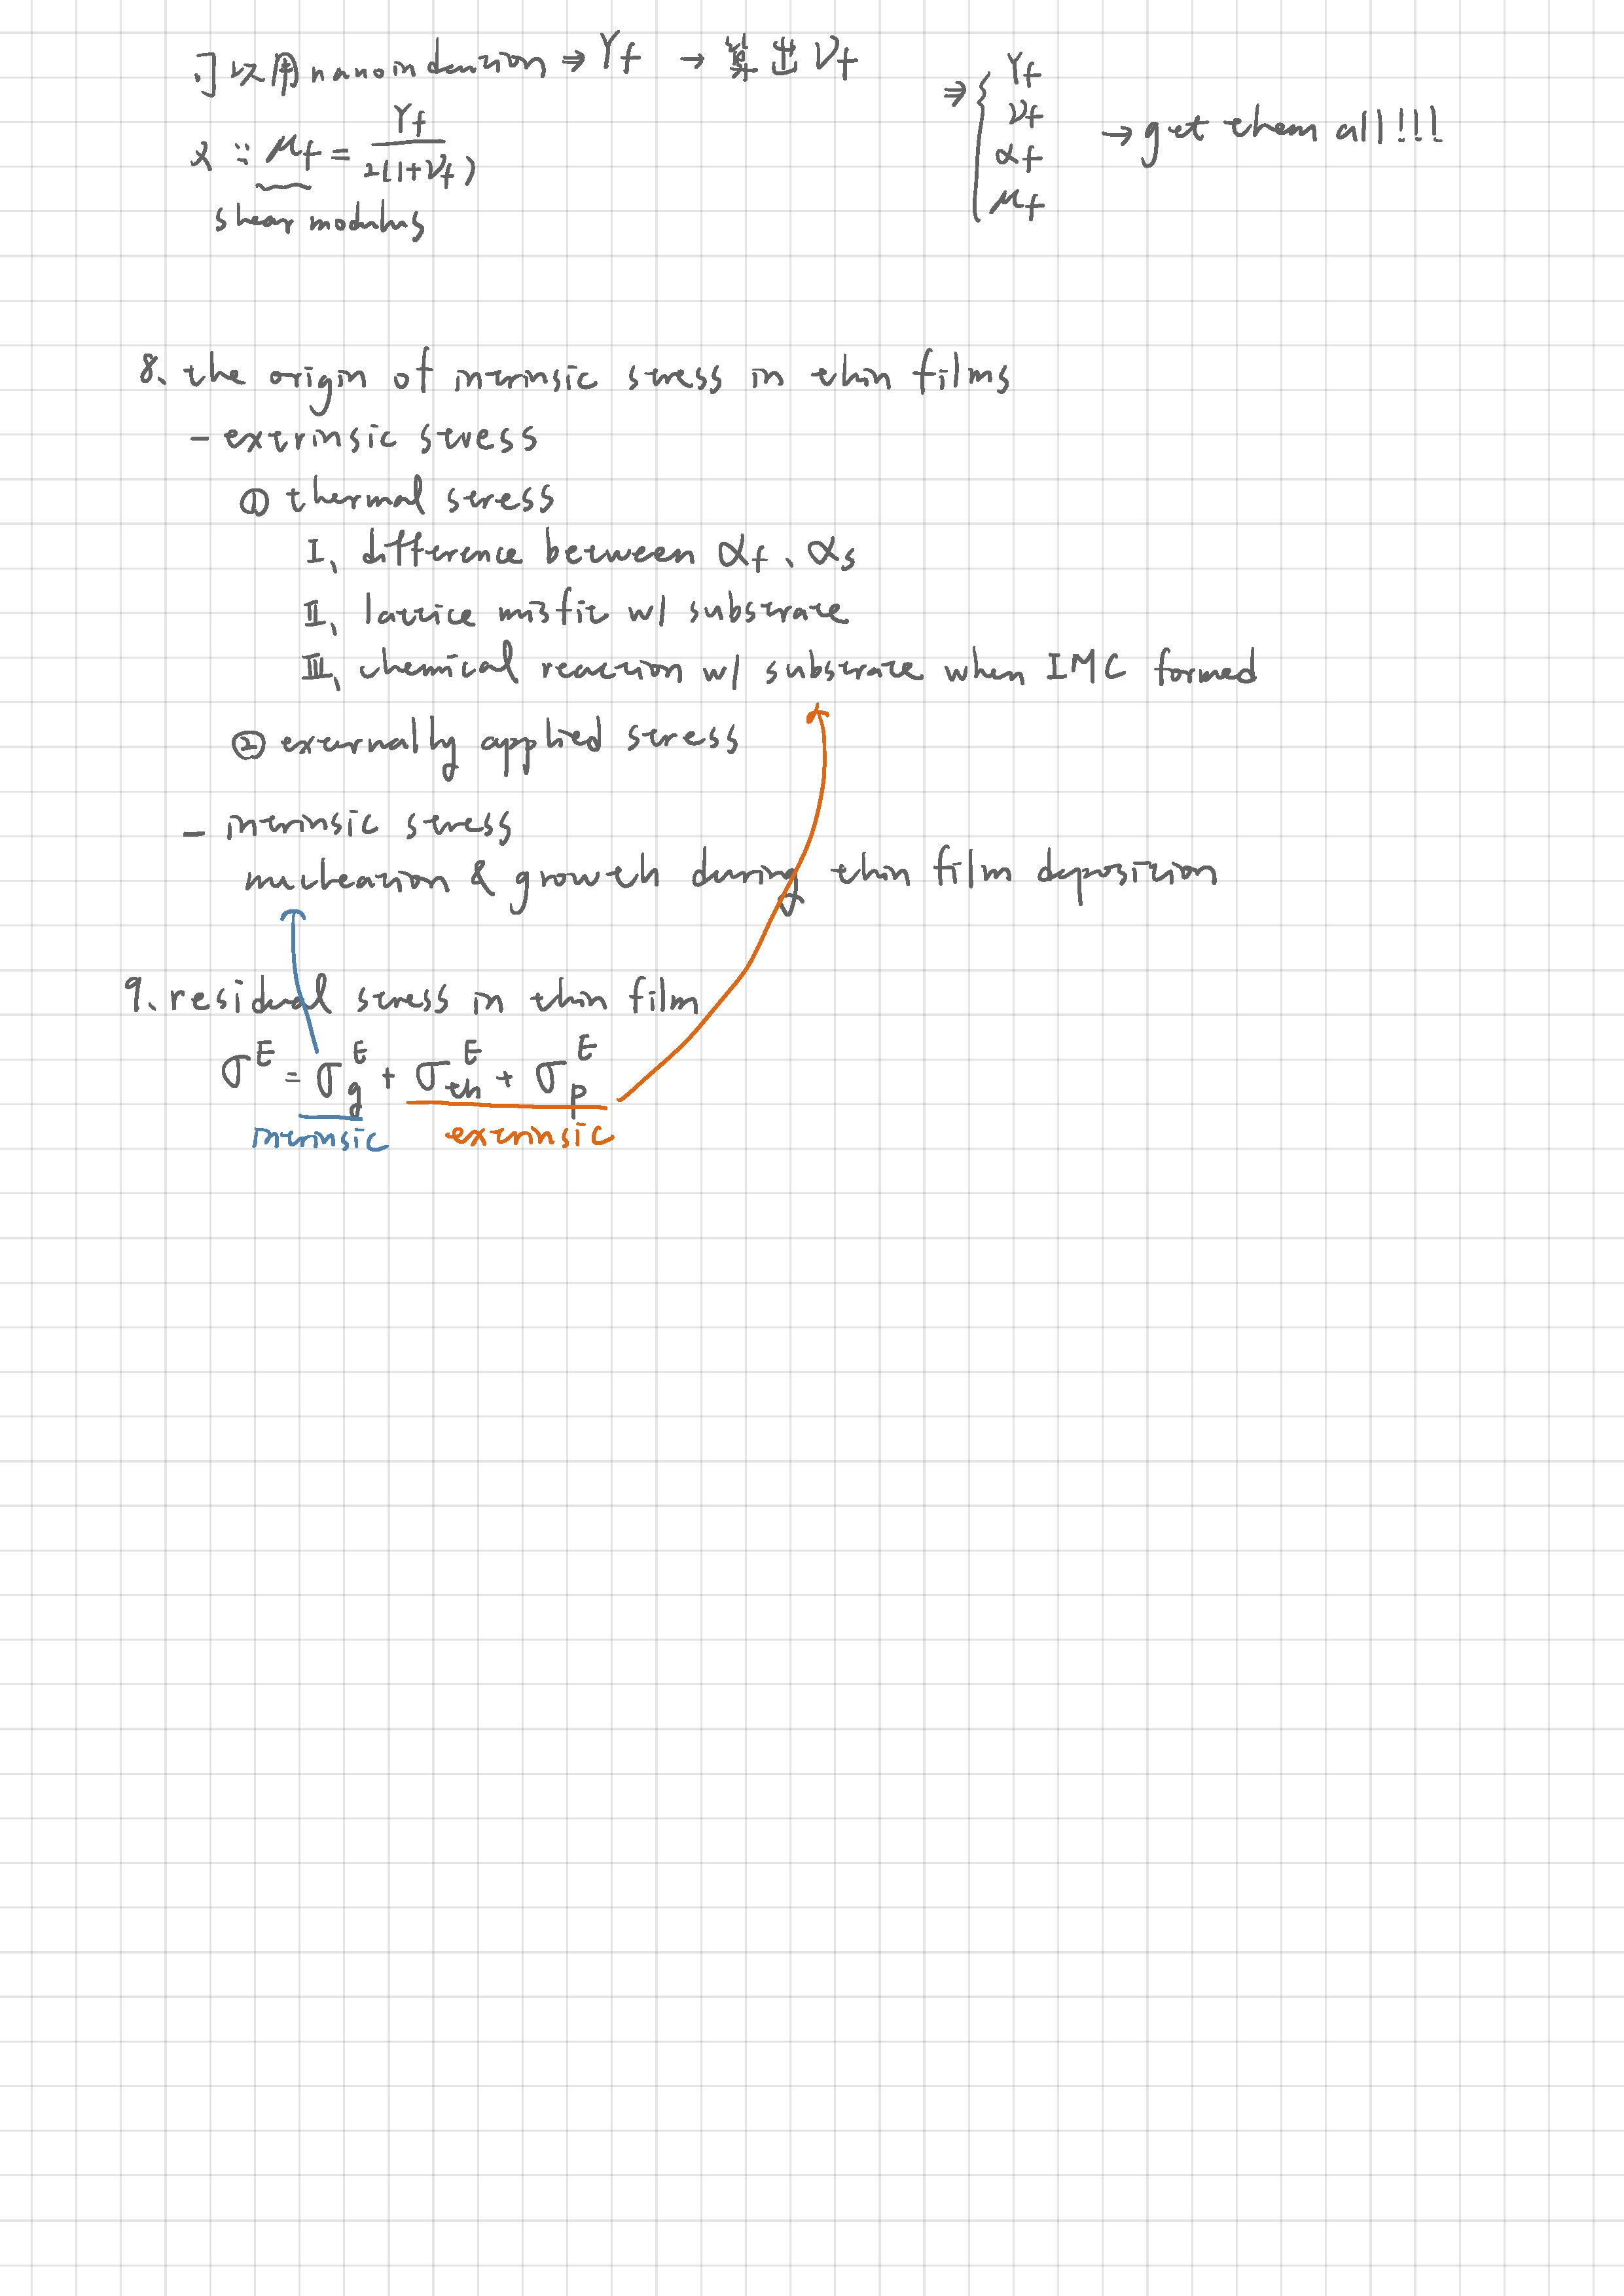 可以用 nanoindention ⇒ Yf → 算出 νf
又 ∵ μf = Yf / 2(1+νf)
shear modulus
⇒ { Yf
νf
αf
μf
→ get them all!!!
8. the origin of intrinsic stress in thin films
- extrinsic stress
① thermal stress
I. difference between αf、αs
II. lattice misfit w/ substrate
III. chemical reaction w/ substrate when IMC formed
② externally applied stress
- intrinsic stress
nucleation & growth during thin film deposition
9. residual stress in thin film
σ^E = σ_g^E + σ_th^E + σ_p^E
intrinsic extrinsic